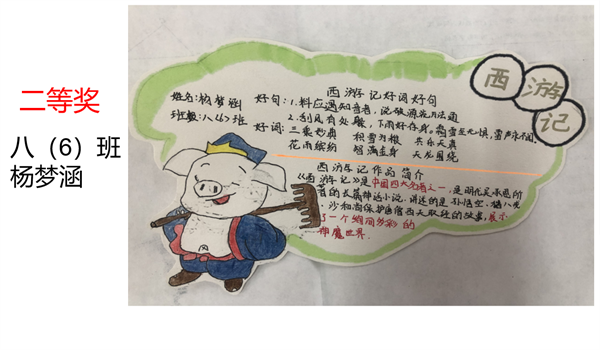 二等奖
八（6）班
杨梦涵
西游记
西游记好词好句
姓名:杨梦涵
班级:八<6>班
好句:1.料应遇知音者,说破源流万法通
2.刮风有处躲,下雨好存身。霜雪全无惧,雷声永不闻。
好词:三乘妙典 积雪为粮 共乐天真
花雨缤纷 智满金身 天龙围绕
西游记作品简介
《西游记》是中国四大名著之一,是明代吴承恩所
著的长篇神话小说,讲述的是孙悟空,猪八戒
沙和尚保护唐僧西天取经的故事,展示
了一个绚丽多彩的
神魔世界.